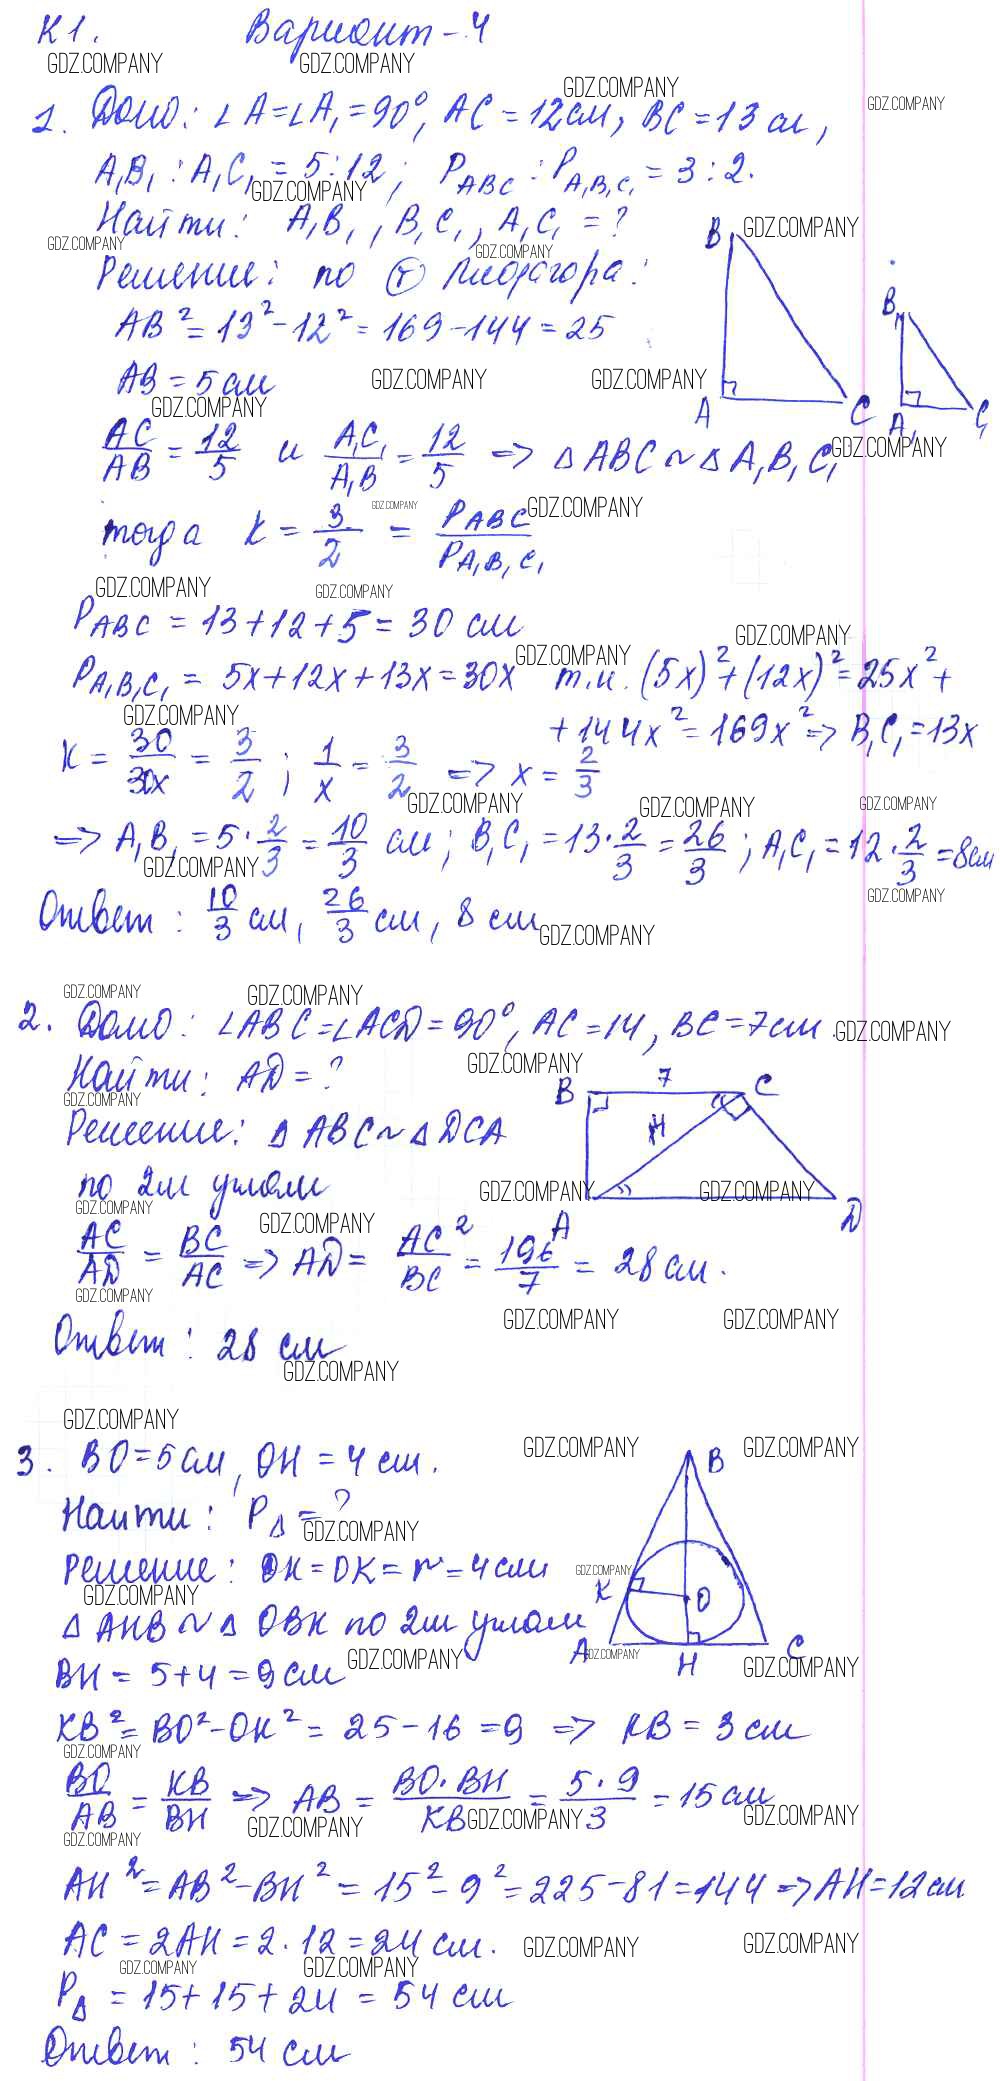 К1. Вариант-4
1. Дано: ∠A=∠A₁=90°, AC=12см, BC=13см,
A₁B₁:A₁C₁=5:12; P_ABC:P_A₁B₁C₁=3:2.
Найти: A₁B₁, B₁C₁, A₁C₁=?
Решение: по Ⓣ Пифагора:
AB²=13²-12²=169-144=25
AB=5см
AC/AB=12/5 и A₁C₁/A₁B=12/5 => △ABC~△A₁B₁C₁
тогда K=3/2=P_ABC/P_A₁B₁C₁
P_ABC=13+12+5=30 см
P_A₁B₁C₁=5x+12x+13x=30x т.к. (5x)²+(12x)²=25x²+
+144x²=169x²=> B₁C₁=13x
K=30/30x=3/2; 1/x=3/2 => x=2/3
=> A₁B₁=5·2/3=10/3 см; B₁C₁=13·2/3=26/3; A₁C₁=12·2/3=8см
Ответ: 10/3 см, 26/3 см, 8 см
B
A
C
B₁
A₁
C₁
2. Дано: ∠ABC=∠ACD=90°, AC=14, BC=7см.
Найти: AD=?
Решение: △ABC~△DCA
по 2м углам
AC/AD=BC/AC => AD=AC²/BC=196/7=28см.
Ответ: 28 см
B
7
C
A
D
3. BO=5см, OH=4см.
Найти: P△=?
Решение: OH=OK=r=4см
△AHB~△OBK по 2м углам
BH=5+4=9см
KB²=BO²-OK²=25-16=9 => KB=3см
BO/AB=KB/BH => AB=BO·BH/KB=5·9/3=15см
AH²=AB²-BH²=15²-9²=225-81=144=>AH=12см
AC=2AH=2·12=24см.
P△=15+15+24=54см
Ответ: 54 см
B
K
O
A
H
C
GDZ.COMPANY